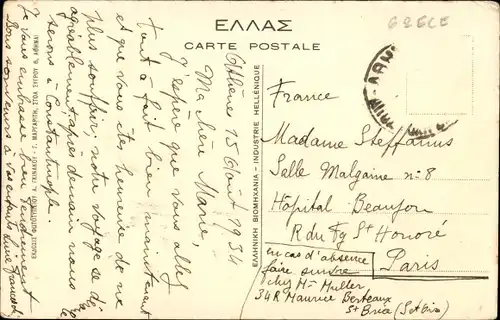 ΕΛΛΑΣ
CARTE POSTALE
GRECE
Athène 15 Août 1934
Ma chère Marie,
J'espère que vous allez
tout à fait bien maintenant
et que vous êtes heureuse de ne
plus souffrir. notre voyage se
agréablement, après demain nous
serons à Constantinople.
Je vous embrasse bien tendrement
Bons souvenirs à vos enfants
ΕΛΛΗΝΙΚΗ ΒΙΟΜΗΧΑΝΙΑ - INDUSTRIE HELLÉNIQUE
France
Madame Steffanius
Salle Malgaine n° 8
Hôpital Beaujon
R du Fg St Honoré
Paris
en cas d'absence
faire suivre
chez Mme Muller
34 R Maurice Berteaux
St Brice (Set Oise)